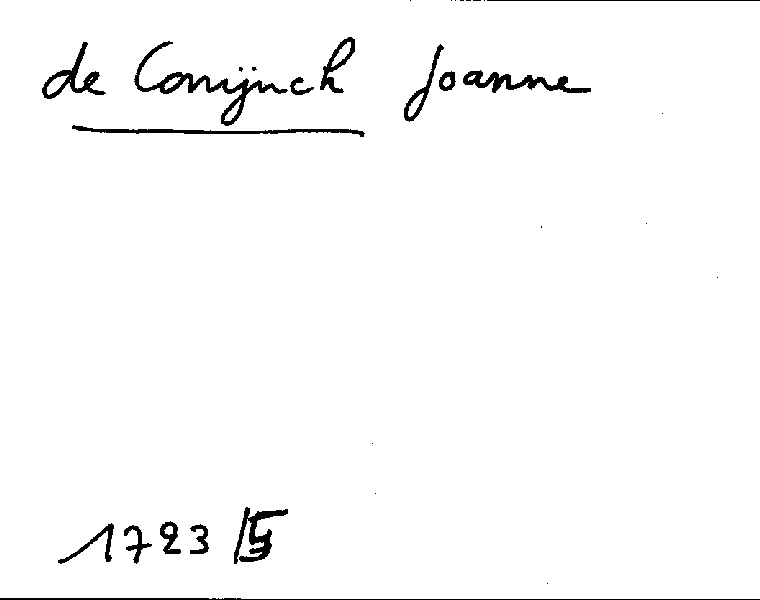 de Conijnch Joanne
1723/5